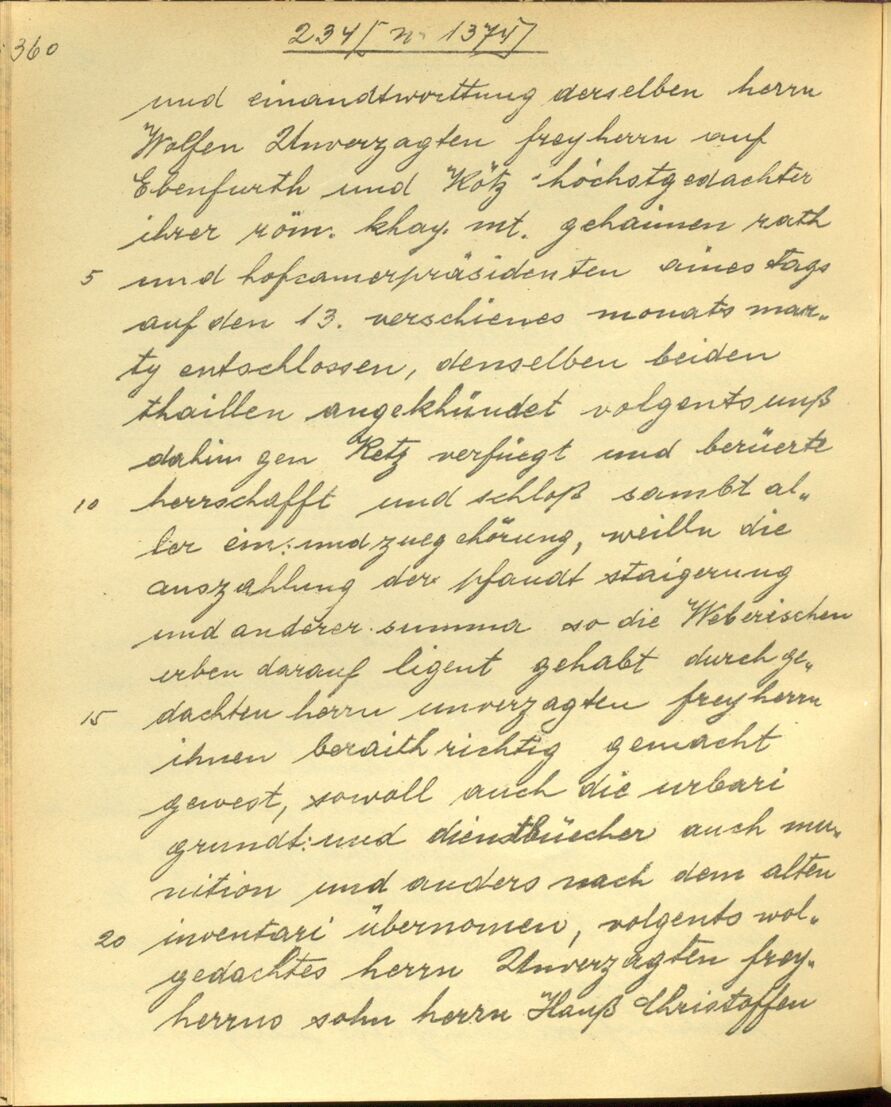 360
234/[n. 1374/]
und einandtworttung derselben herrn
Wolfen Unverzagten freyherrn auf
Ebenfurth und Kötz höchstgedachter
ihrer röm. khay. mt. gehaimen rath
5 und hofcamerpräsidenten aines tags
auf den 13. verschienes monats mar„
ty entschlossen, denselben beiden
thaillen angekhündet volgents unß
dahin gen Ketz verfüegt und berüerte
10 herrschafft und schloß sambt al„
ler ein: und zuegehörung, weilln die
auszahlung der pfandt staigerung
und anderer summa so die Weberischen
erben darauf ligent gehabt durch ge„
15 dachten herrn unverzagten freyherrn
ihnen beraith richtig gemacht
gewest, sowoll auch die urbari
grundt: und dienstbüecher auch mu„
nition und anders nach dem alten
20 inventari übernomen, volgents wol„
gedachtes herrn Unverzagten frey„
herrns sohn herrn Hanß Christoffen